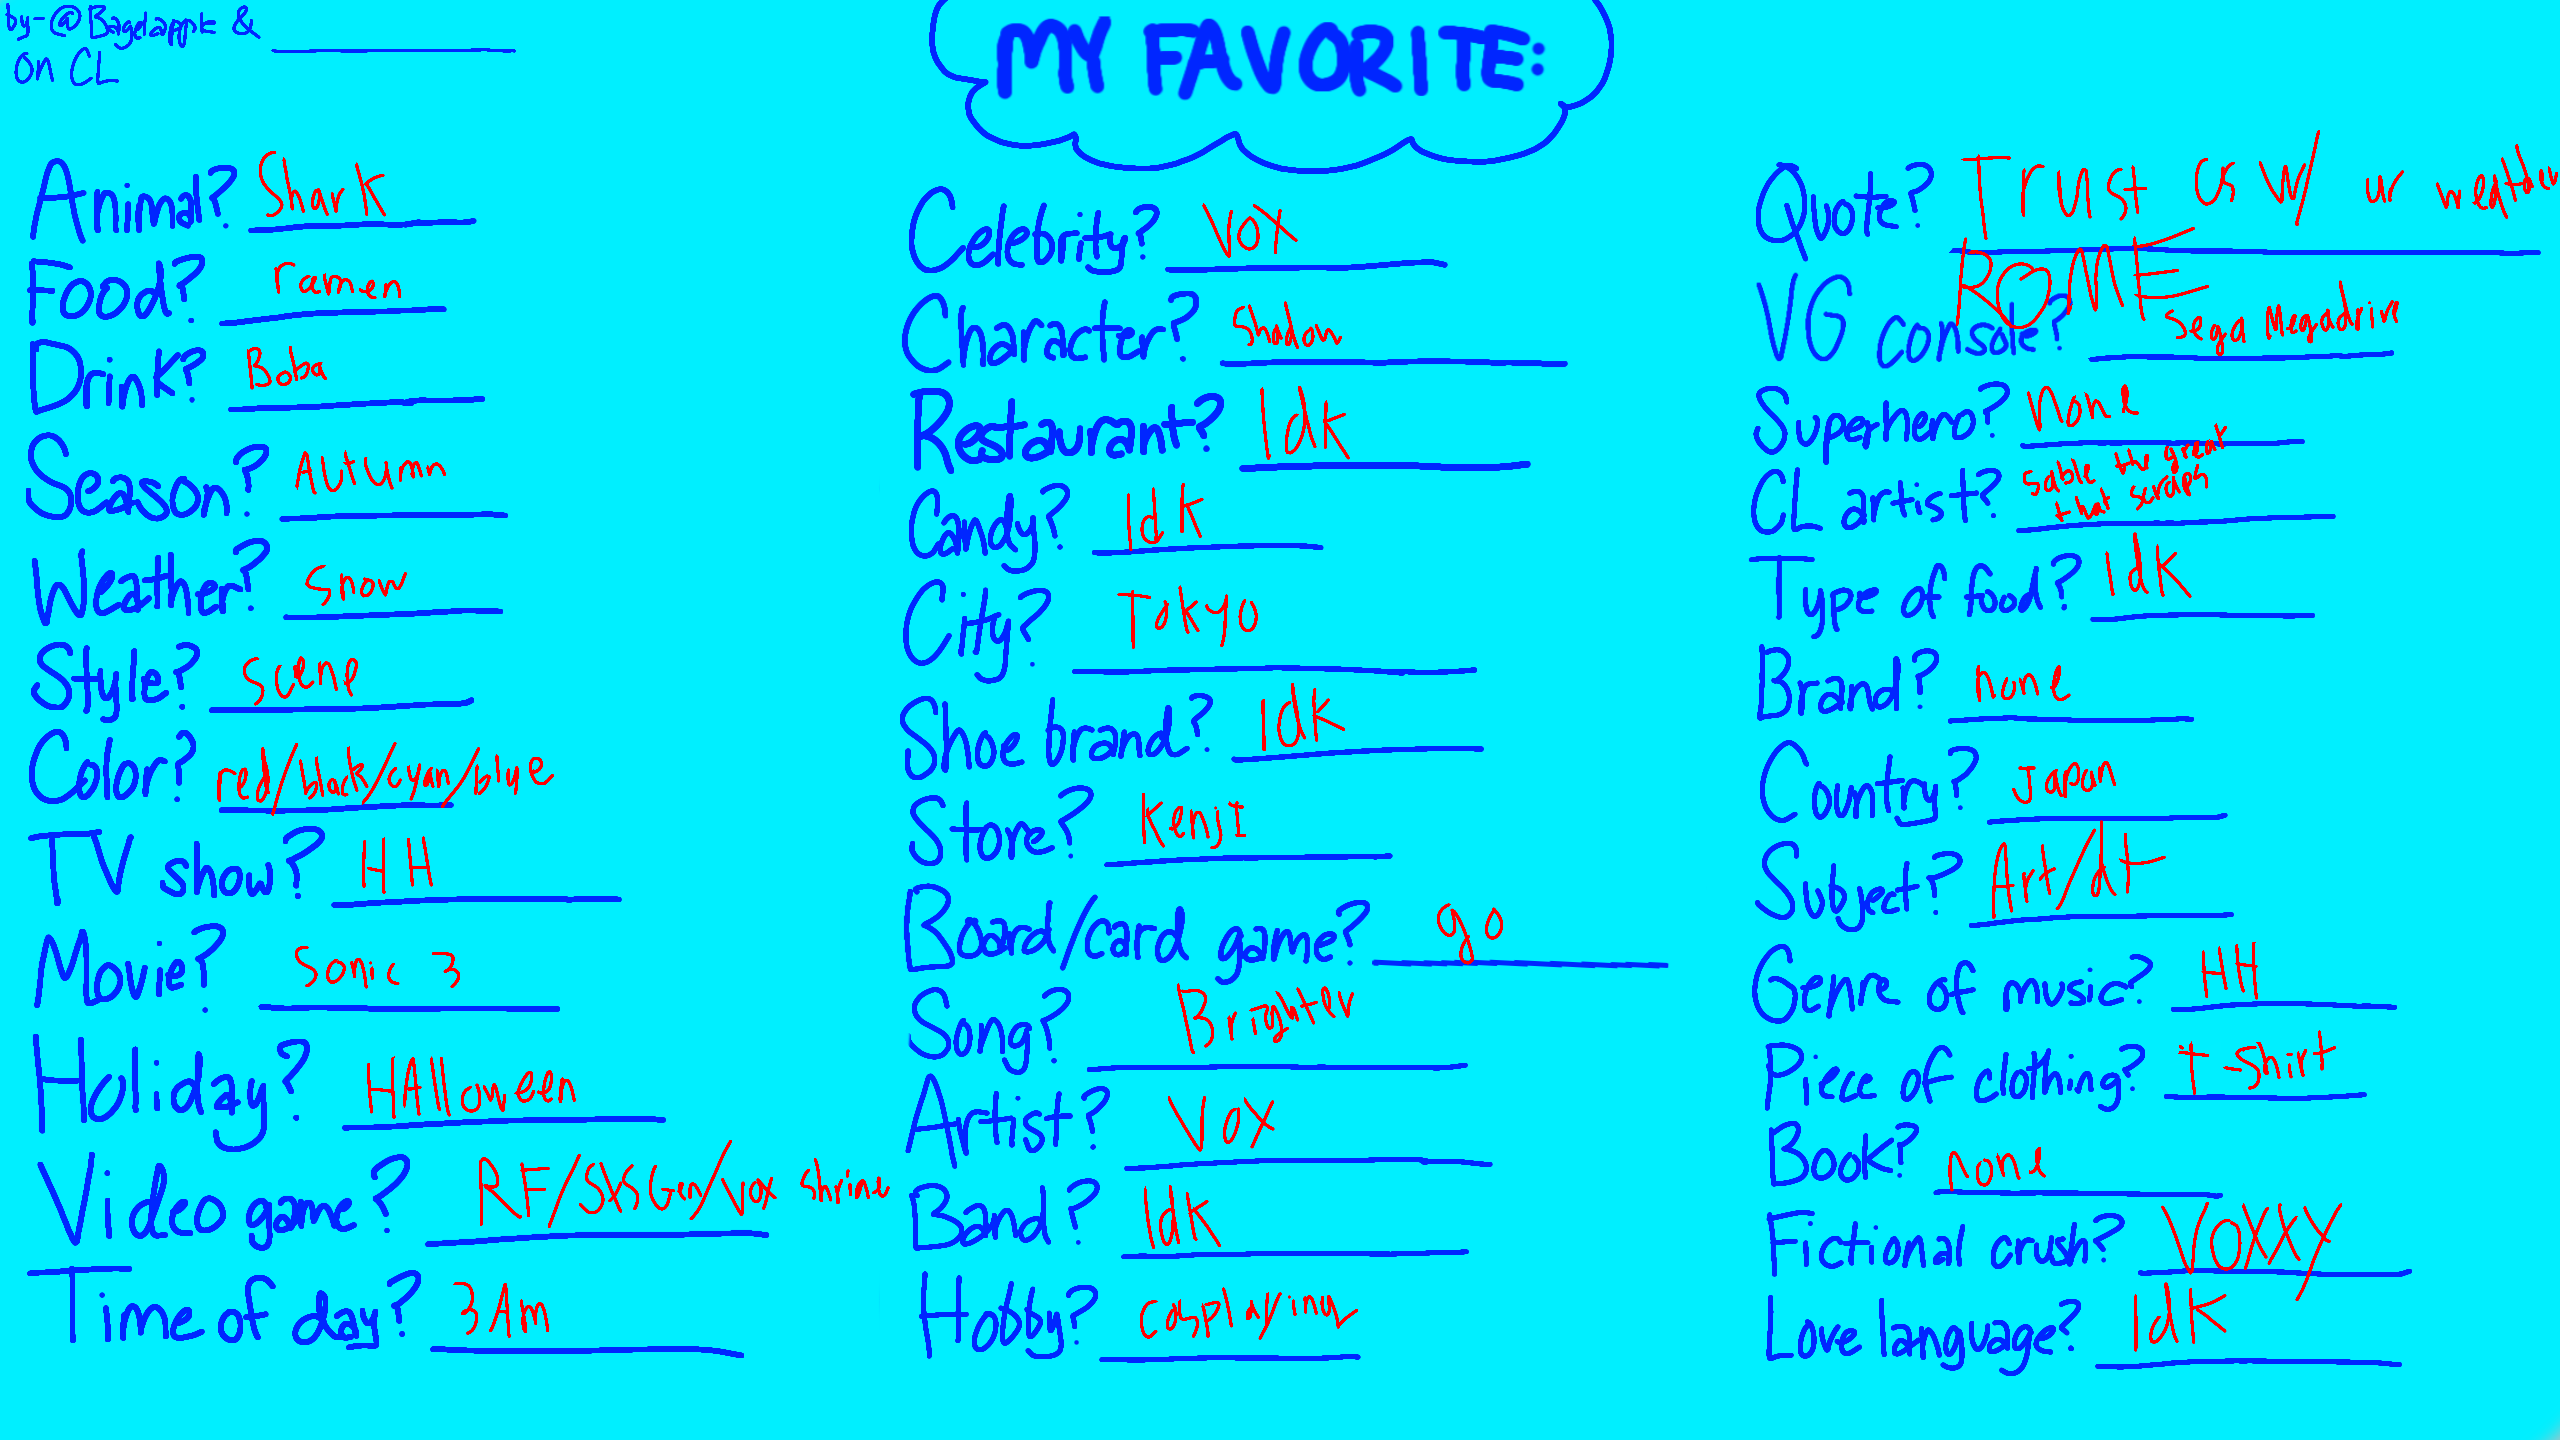 by-@Bagelapple &
on CL
MY FAVORITE:
Animal? Shark
Food? ramen
Drink? Boba
Season? Autumn
Weather? Snow
Style? Scene
Color? red/black/cyan/blue
TV show? HH
Movie? Sonic 3
Holiday? HAlloween
Video game? RF/SXSGen/Vox shrine
Time of day? 3Am
Celebrity? VOX
Character? Shadow
Restaurant? Idk
Candy? Idk
City? Tokyo
Shoe brand? Idk
Store? Kenji
Board/card game? go
Song? Brighter
Artist? VOX
Band? Idk
Hobby? cosplaying
Quote? Trust us w/ ur weather
ROME
VG console? Sega Megadrive
Superhero? none
CL artist? Sable the great
that scraps
Type of food? Idk
Brand? none
Country? Japan
Subject? Art/dt
Genre of music? HH
Piece of clothing? t-shirt
Book? none
Fictional crush? VOXXY
Love language? Idk